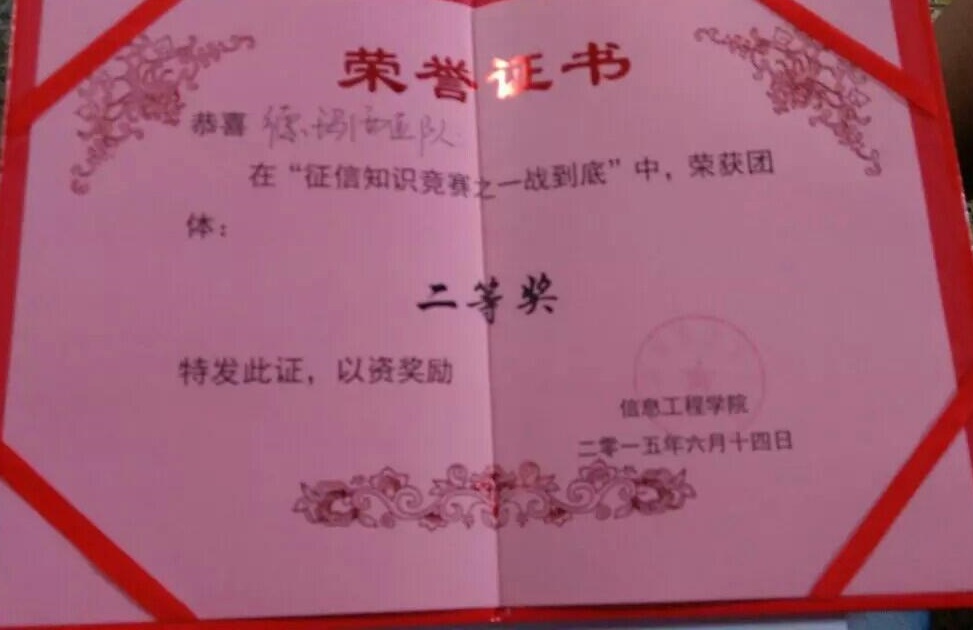 荣誉证书
恭喜 队
在“征信知识竞赛之一战到底”中，荣获团
体：
二等奖
特发此证，以资奖励
信息工程学院
二零一五年六月十四日